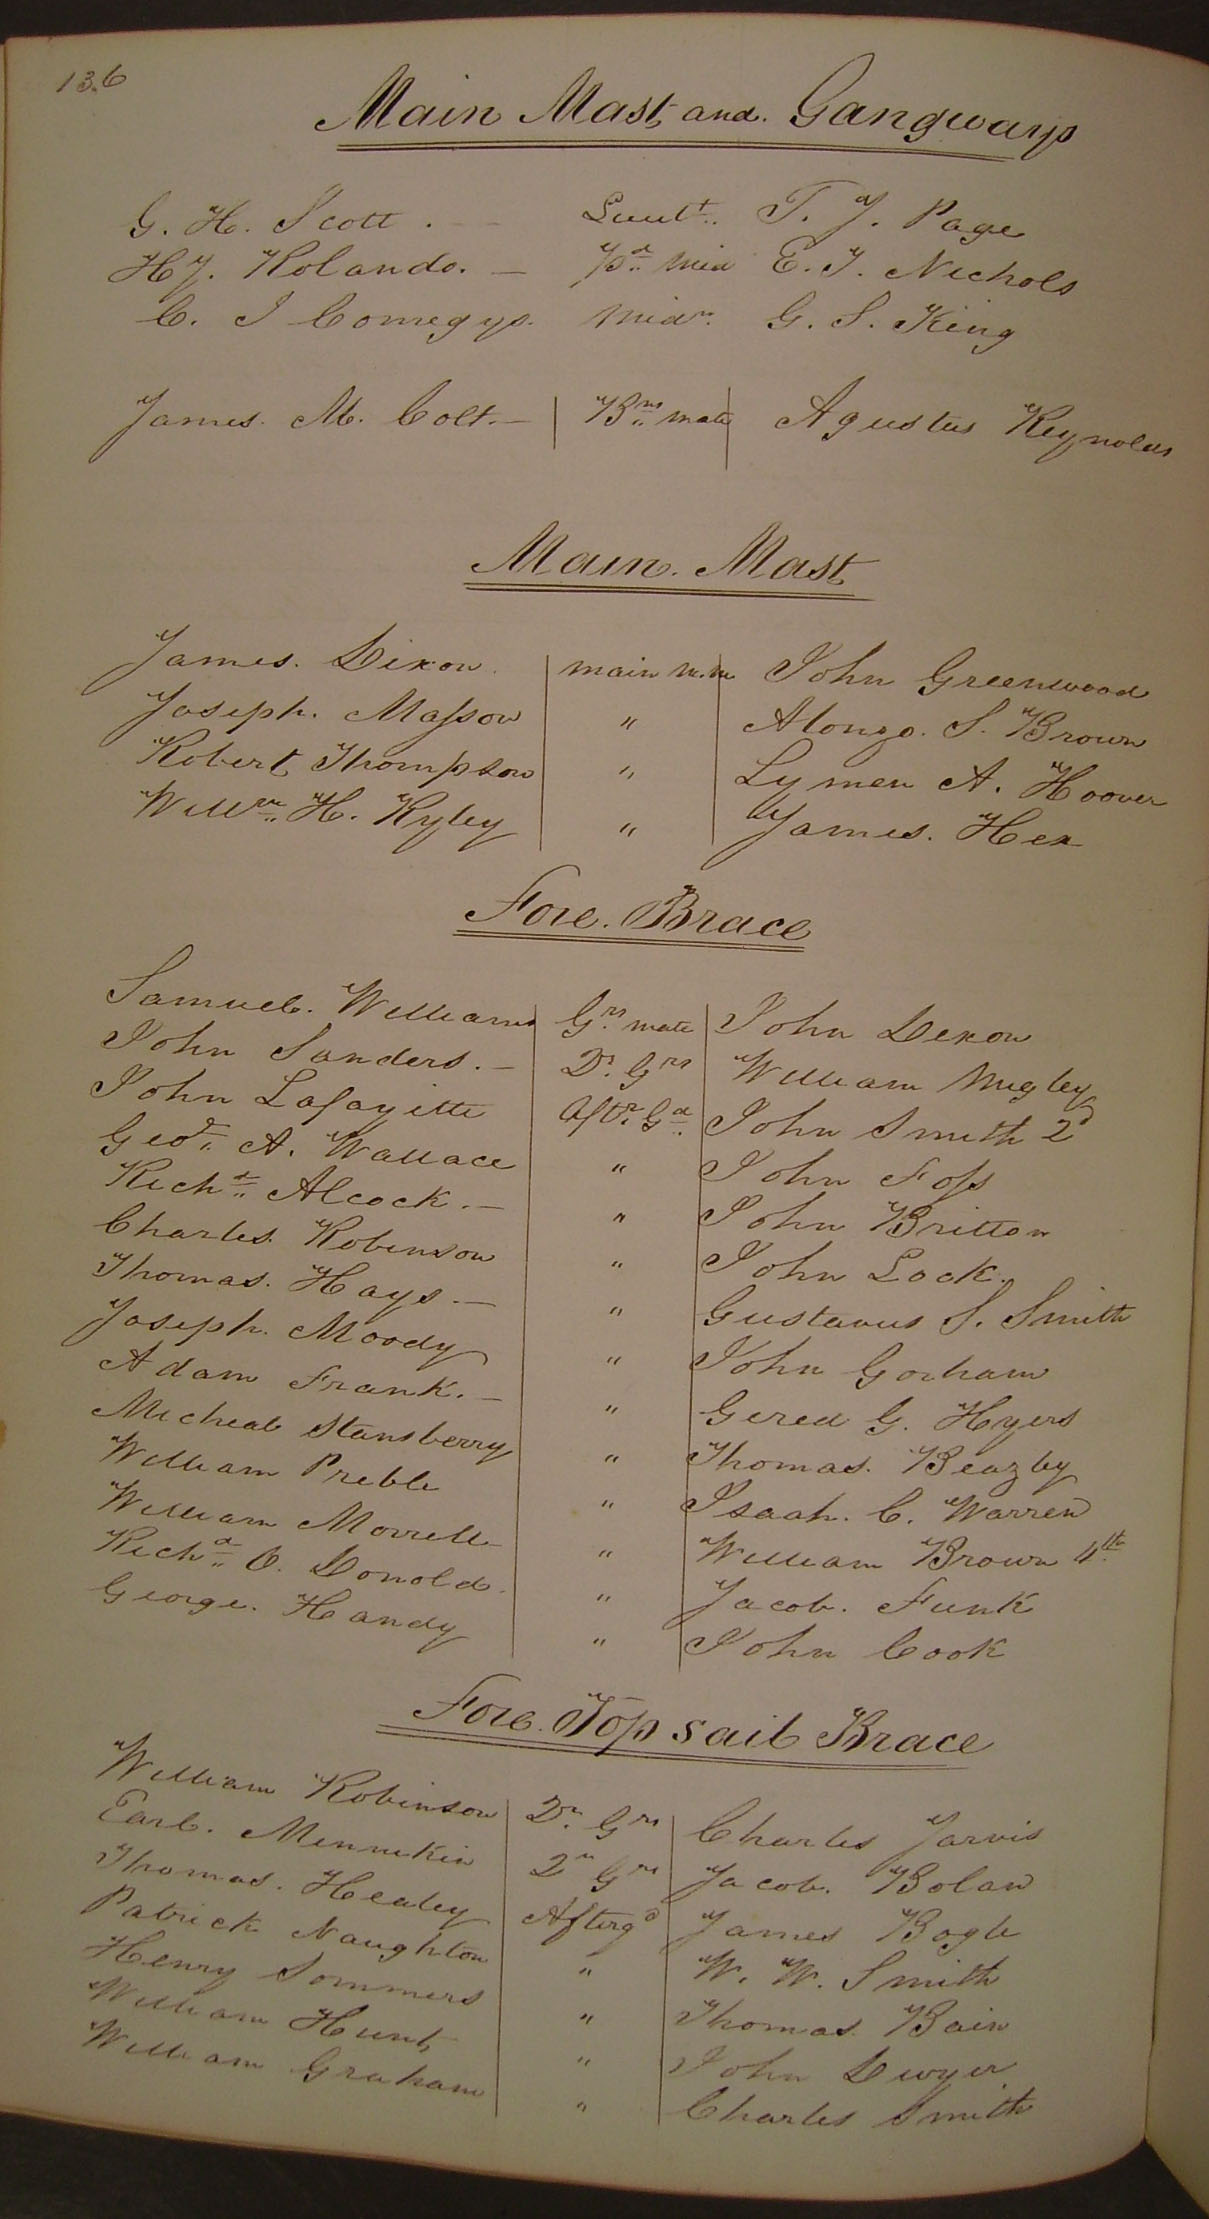 136
Main Mast and. Gangways
G. H. Scott . — Lieutt. T. J. Page
H J. Rolando. — Pd. Mid E. T. Nichols
C. I Comegys. Midn. G. S. King
James. M. Colt. — Bns. mate Agustus Reynolds
Main. Mast
James. Dixon. main m.m John Greenwood
Joseph. Masson " Alonzo. S. Brown
Robert Thompson " Lymen A. Hoover
Willm. H. Ryley " James. Hex
Fore. Brace
Samuel. Williams Grs. mate John Dexon
John Sanders. — Qr. Grs William Migley
John Lafayitte Aftr. Gd. John Smith 2d
Geoe. A. Wallace " John Foss
Richd. Alcock. — " John Britton
Charles. Robinson " John Lock.
Thomas. Hays — " Gustavus S. Smith
Joseph. Moody " John Gorham
Adam Frank. — " Gered G. Hyers
Micheal Stansberry " Thomas. Beazley
William Preble " Isaah. C. Warren
William Morrell " William Brown 4th
Richd. O. Donold. " Jacob. Funk
George. Handy " John Cook
Fore. Top sail Brace
William Robinson Qr. Grs Charles Jarvis
Earl. Mennikin Qr Grs Jacob. Bolan
Thomas. Healey Aftergd James Bogle
Patrick Naughton " W. W. Smith
Henry Sommers " Thomas Bain
William Hunt " John Dwyer
William Graham " Charles Smith